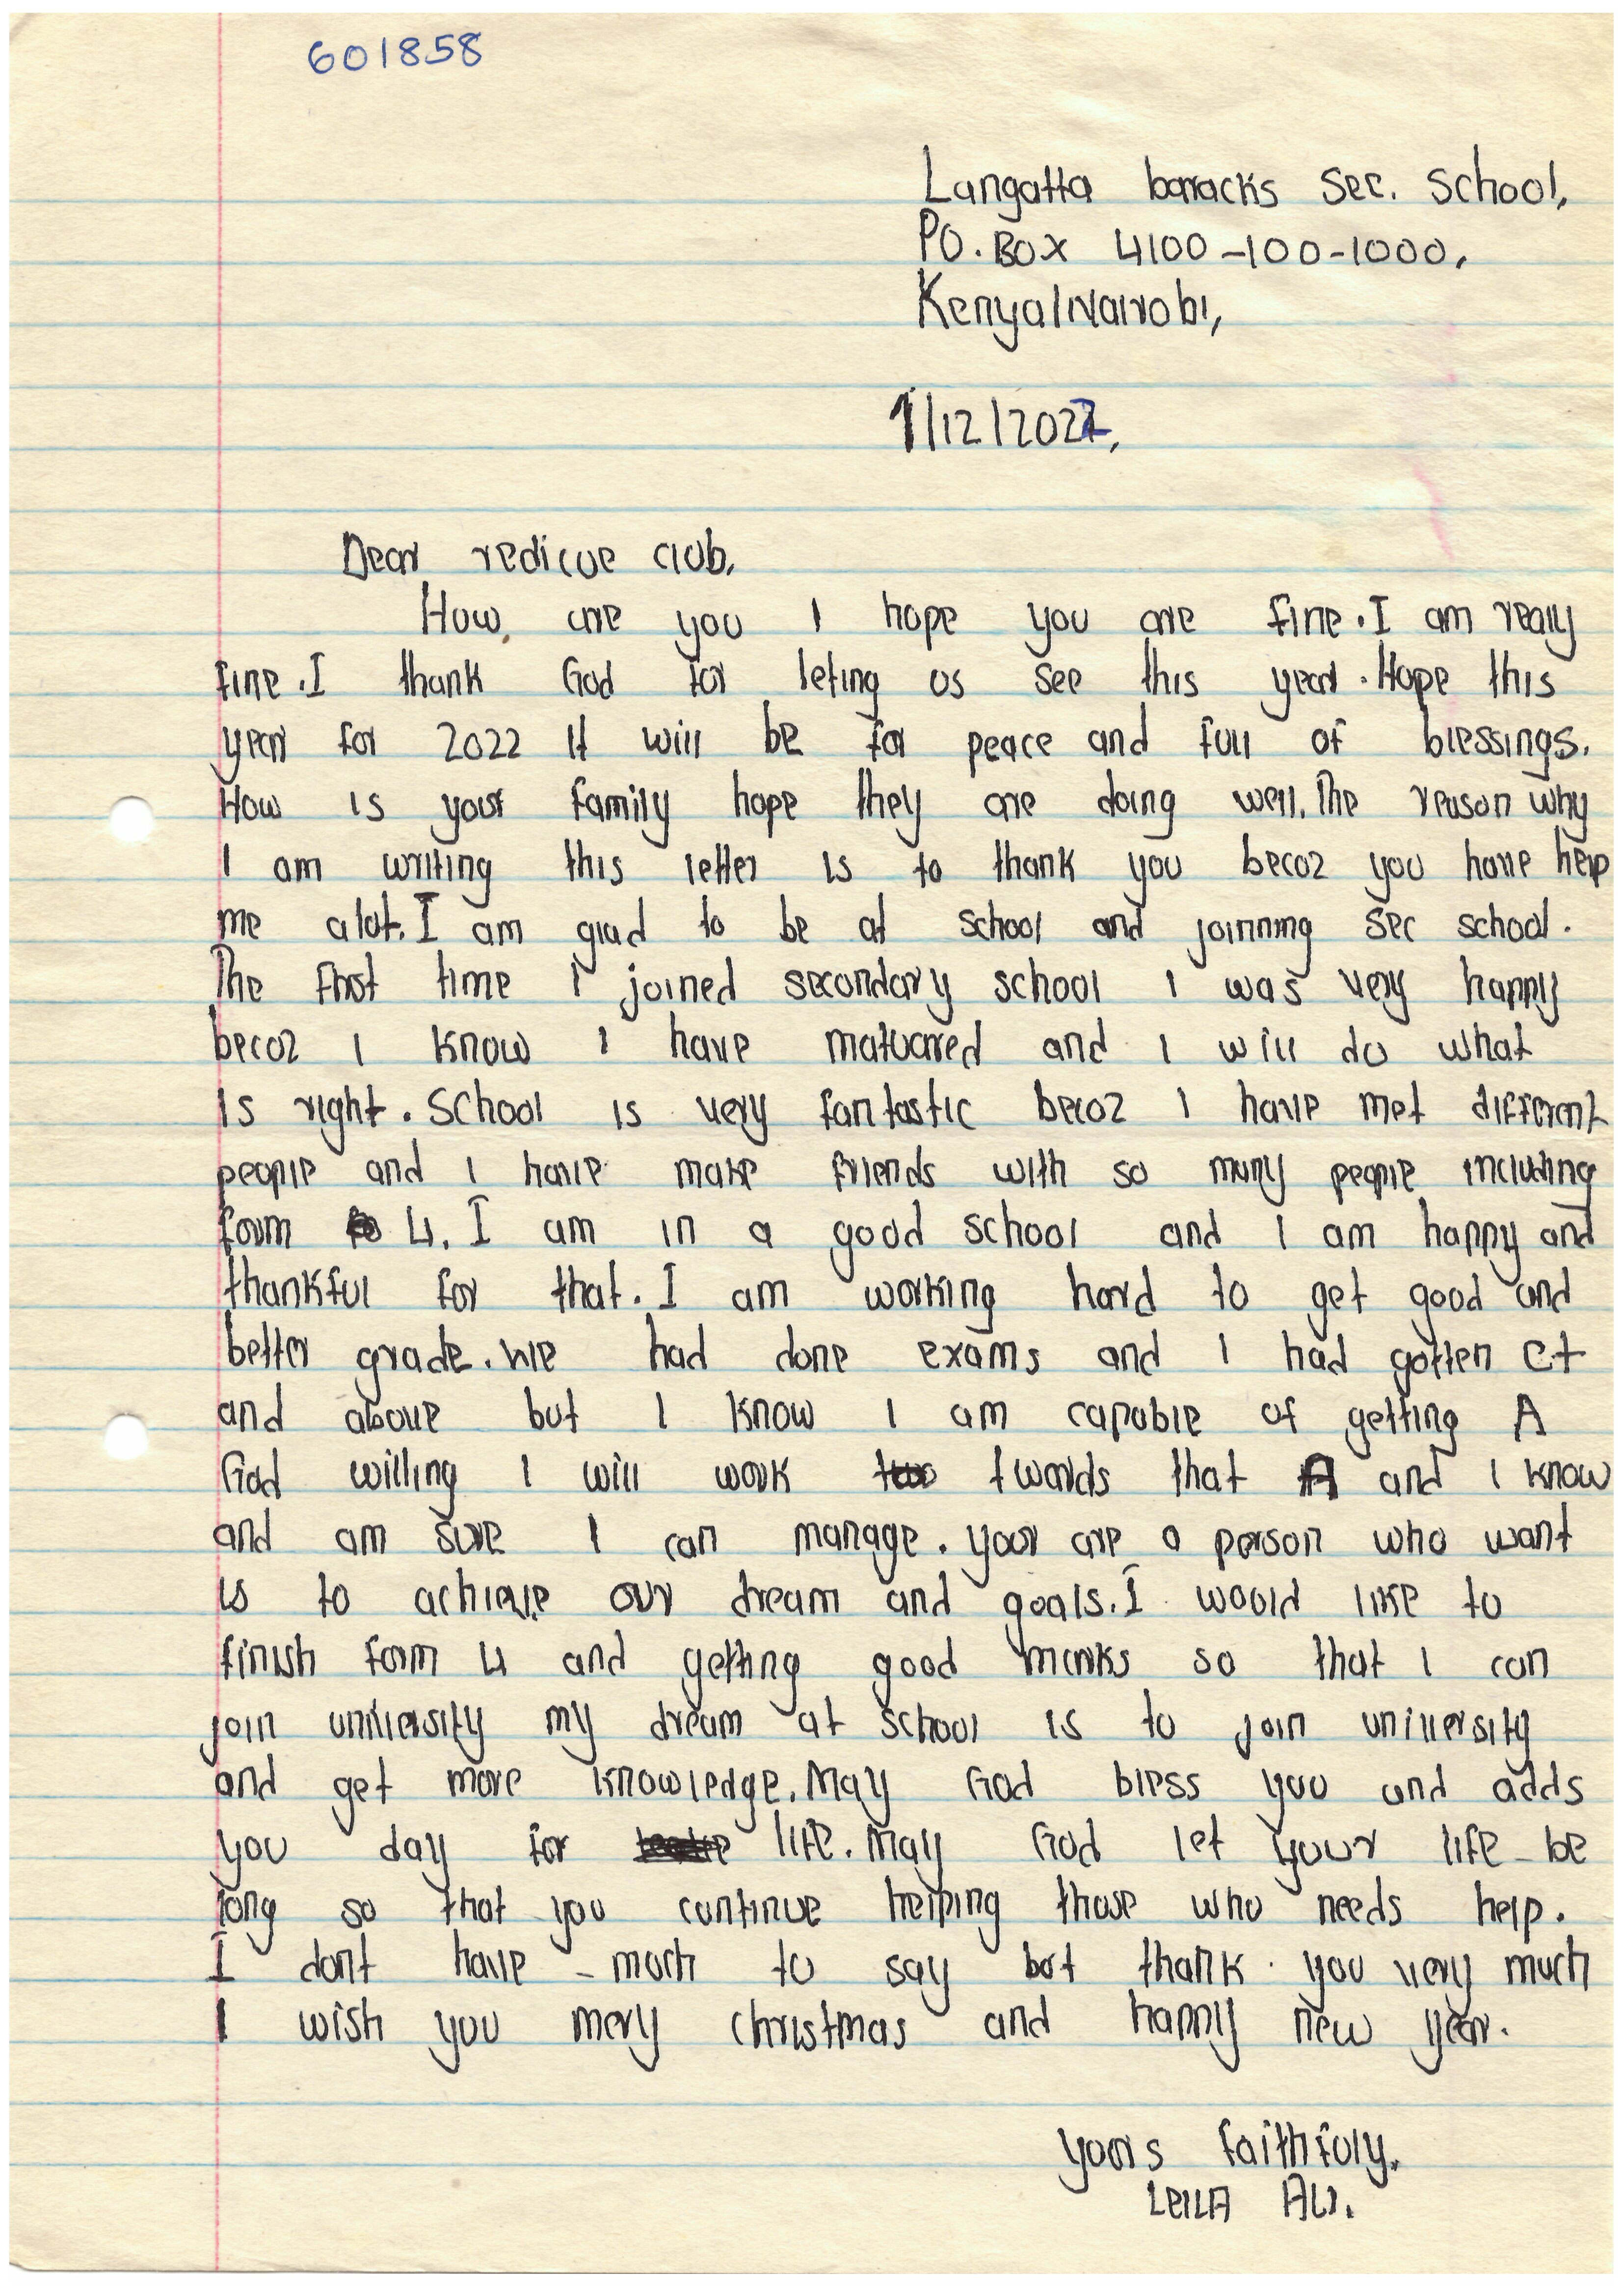 601858
Langatta barracks Sec. School,
PO. BOX 4100-100-1000,
Kenya/Nairobi,
1/12/2022,
Dear redicue club,
How, are you I hope you are fine. I am really
fine. I thank God for leting us see this year. Hope this
year for 2022 It will be for peace and full of blessings.
How is your family hope they are doing well. The reason why
I am writing this letter is to thank you becoz you have help
me alot. I am glad to be at school and joinning sec school.
The first time I joined secondary school I was very happy
becoz I know I have matuared and I will do what
is right. School is very fantastic becoz I have met different
people and I have make friends with so many people including
form 4. I am in a good school and I am happy and
thankful for that. I am working hard to get good and
better grade. We had done exams and I had gotten C+
and above but I know I am capable of getting A
God willing I will work twards that A and I know
and am sure I can manage. your are a person who want
us to achieve our dream and goals. I would like to
finish form 4 and getting good marks so that I can
join university my dream at school is to join university
and get more knowledge. May God bless you and adds
you day for life. May God let your life be
long so that you continue helping those who needs help.
I dont have much to say but thank you very much
I wish you mery christmas and happy new year.
yours faithfuly.
LEILA Ali.